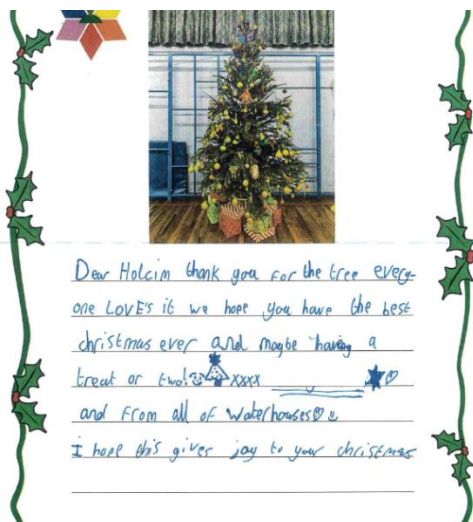 Dear Holcim thank you for the tree every-
one LOVE's it we hope you have the best
christmas ever and maybe having a
treat or two! xxxx
and from all of waterhouses
I hope this gives joy to your christmas